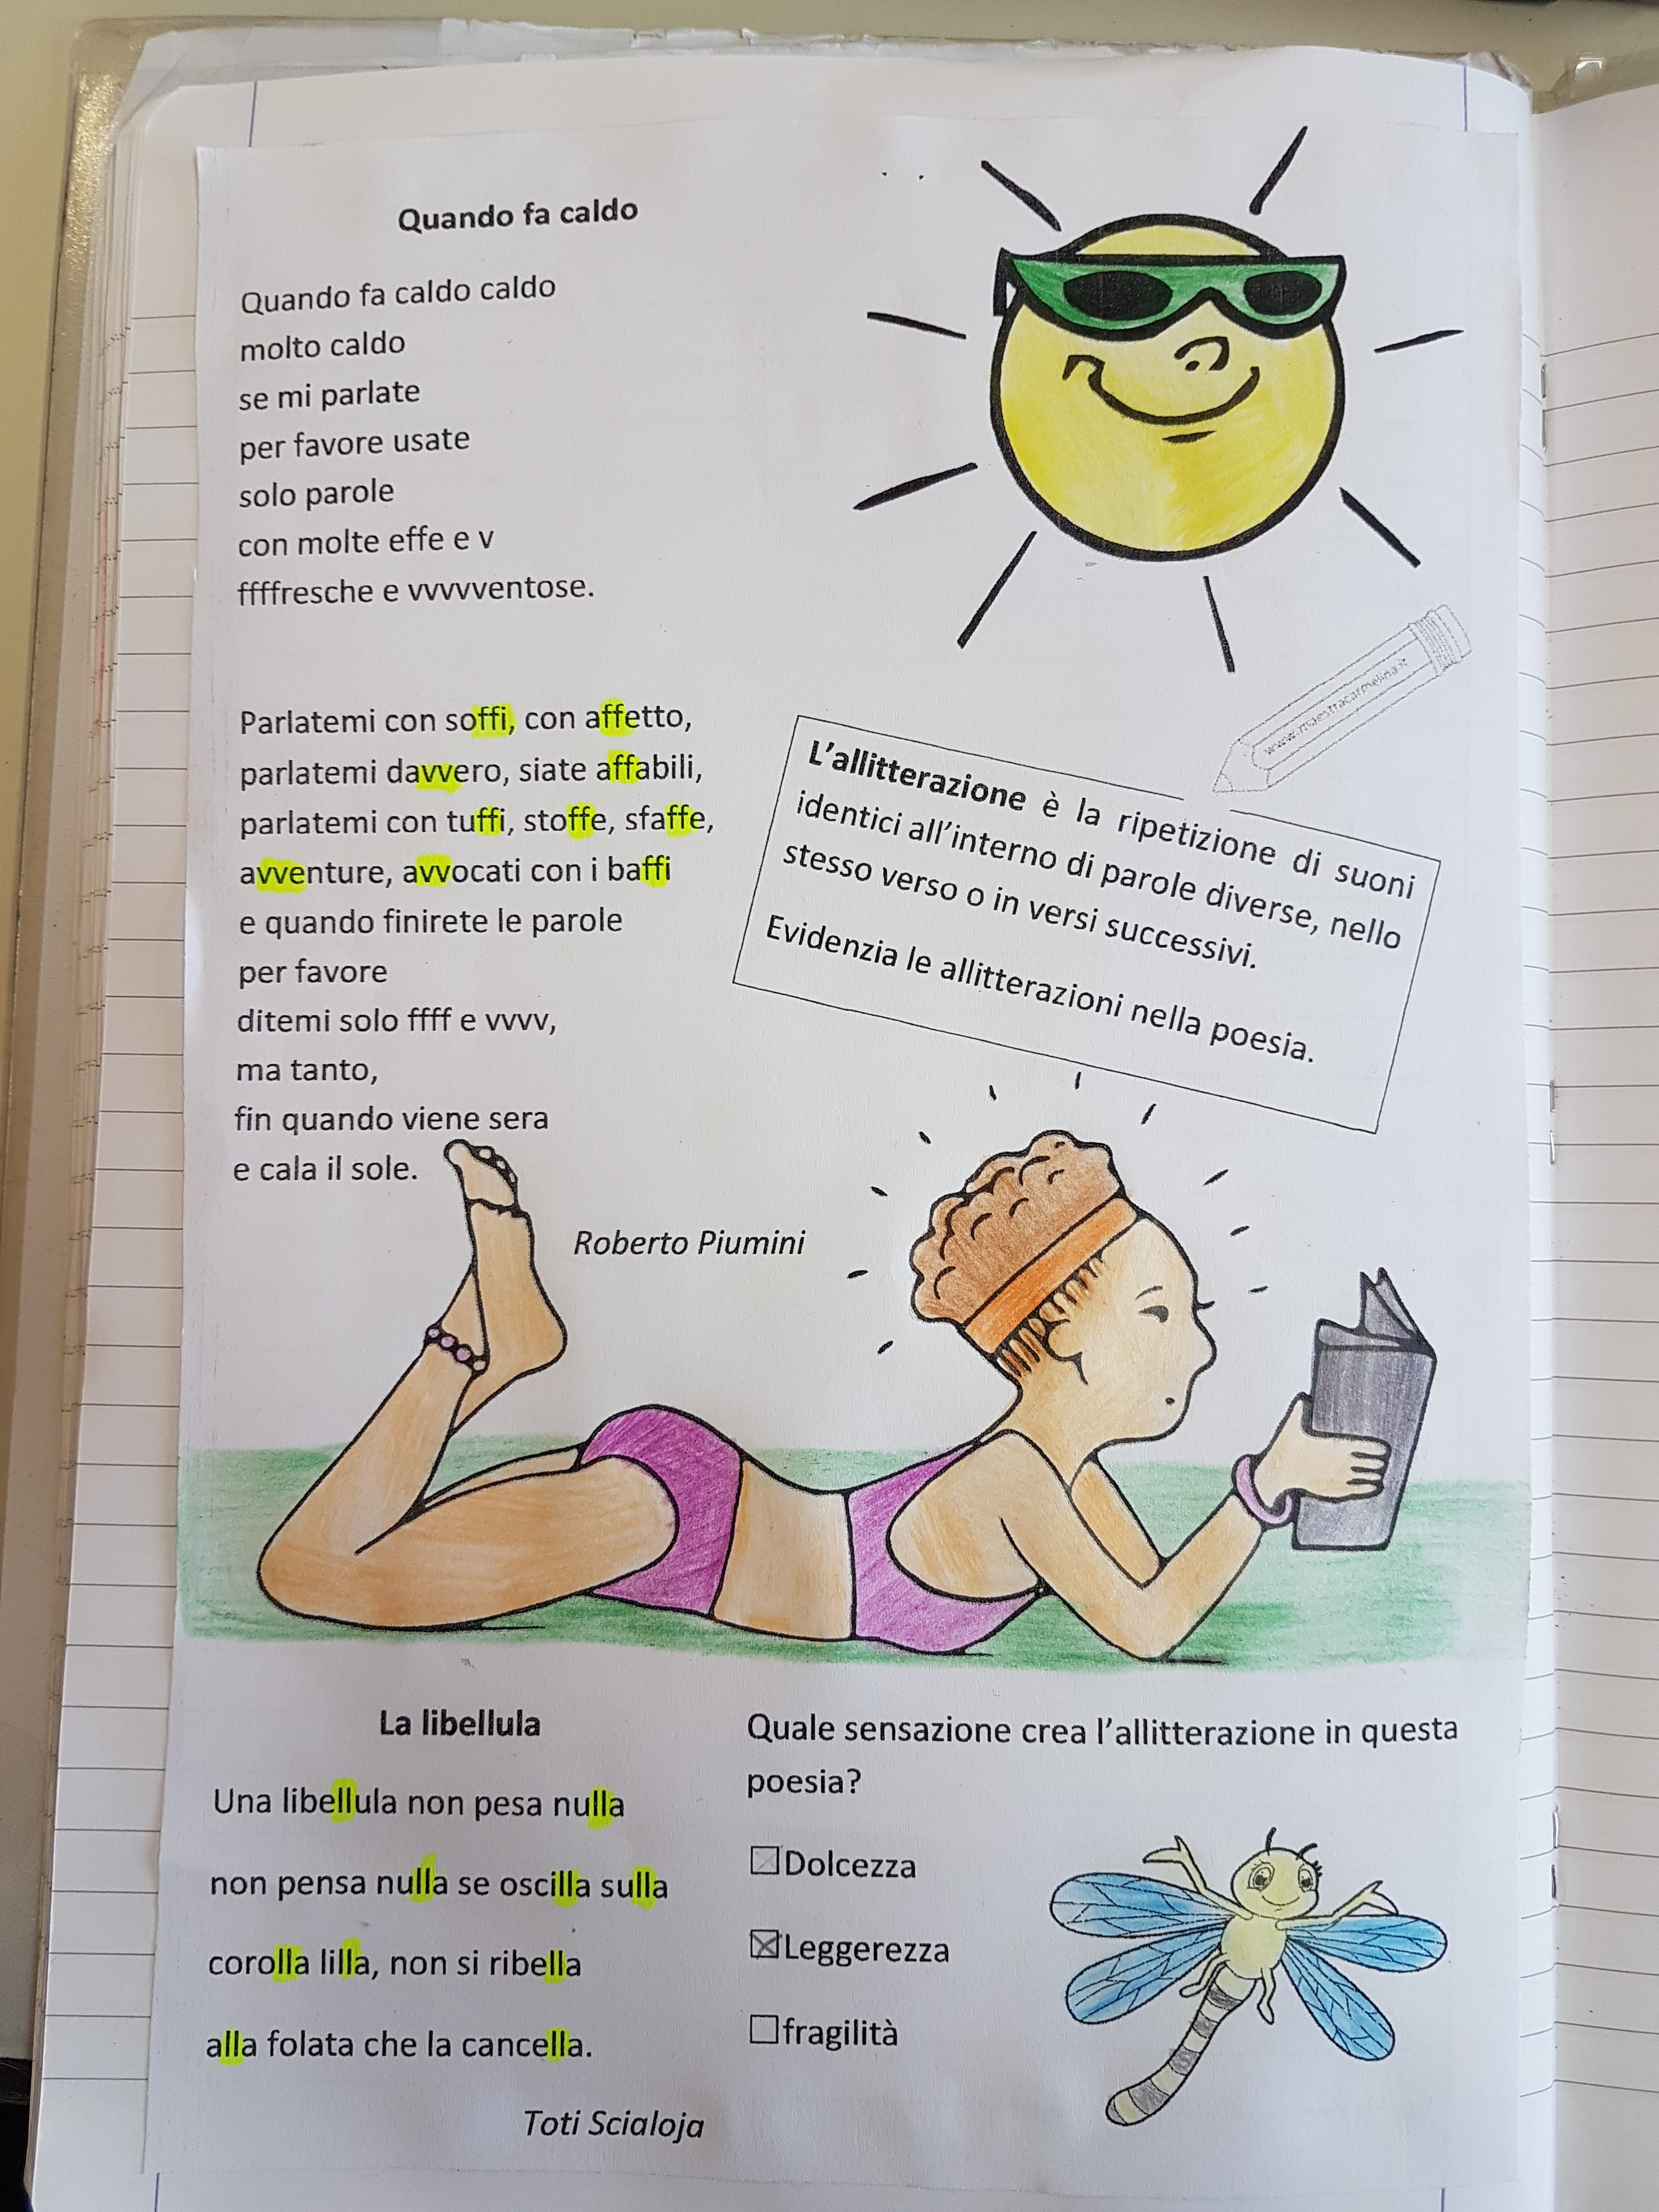 Quando fa caldo
Quando fa caldo caldo
molto caldo
se mi parlate
per favore usate
solo parole
con molte effe e v
ffffresche e vvvvventose.
Parlatemi con soffi, con affetto,
parlatemi davvero, siate affabili,
parlatemi con tuffi, stoffe, sfaffe,
avventure, avvocati con i baffi
e quando finirete le parole
per favore
ditemi solo ffff e vvvv,
ma tanto,
fin quando viene sera
e cala il sole.
Roberto Piumini
www.maestracarmelina.it
L'allitterazione è la ripetizione di suoni
identici all'interno di parole diverse, nello
stesso verso o in versi successivi.
Evidenzia le allitterazioni nella poesia.
La libellula
Una libellula non pesa nulla
non pensa nulla se oscilla sulla
corolla lilla, non si ribella
alla folata che la cancella.
Toti Scialoja
Quale sensazione crea l'allitterazione in questa
poesia?
Dolcezza
Leggerezza
fragilità